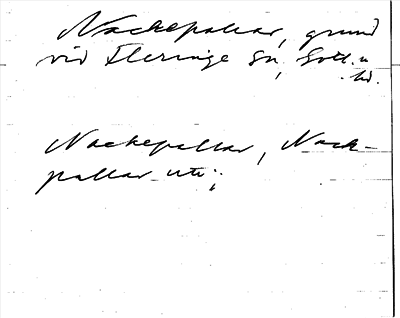 Nackepallar, grund
vid Fleringe sn, Gotl.
Nackepallar, Nack-
pallar ute;